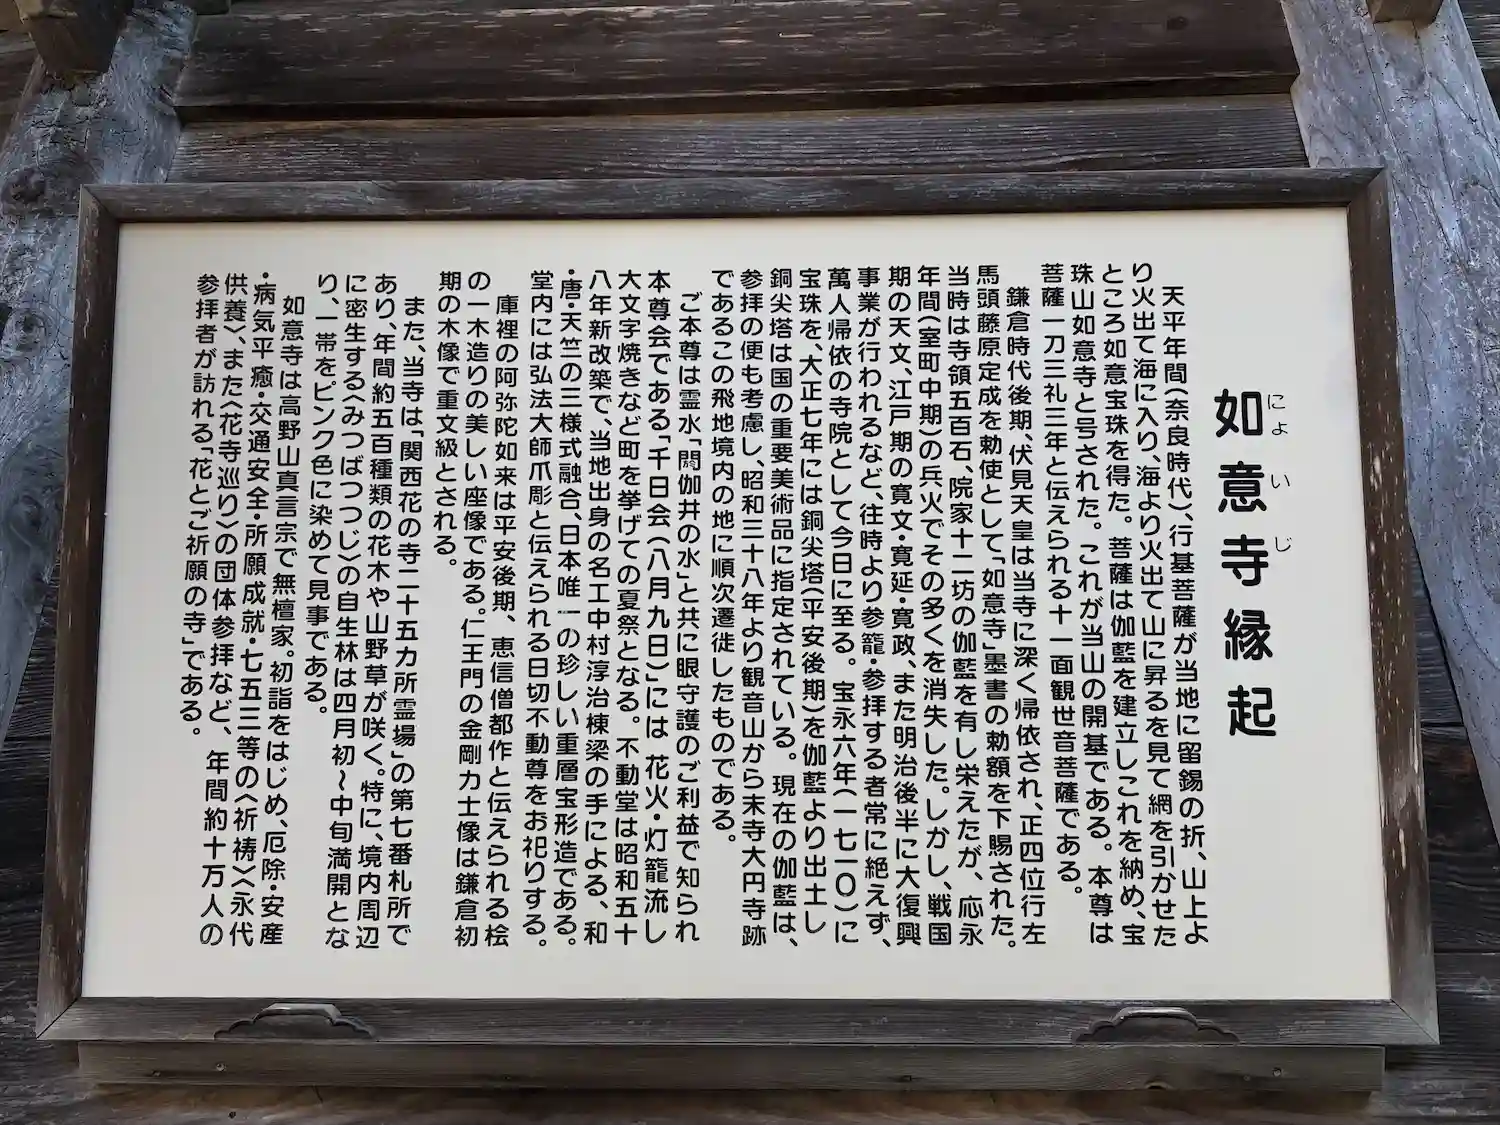 如意寺縁起
にょいじ
天平年間(奈良時代)、行基菩薩が当地に留錫の折、山上よ
り火出て海に入り、海より火出て山に昇るを見て網を引かせた
ところ如意宝珠を得た。菩薩は伽藍を建立しこれを納め、宝
珠山如意寺と号された。これが当山の開基である。本尊は
菩薩一刀三礼三年と伝えられる十一面観世音菩薩である。
鎌倉時代後期、伏見天皇は当寺に深く帰依され、正四位行左
馬頭藤原定成を勅使として「如意寺」墨書の勅額を下賜された。
当時は寺領五百石、院家十二坊の伽藍を有し栄えたが、応永
年間(室町中期)の兵火でその多くを消失した。しかし、戦国
期の天文、江戸期の寛文・寛延・寛政、また明治後半に大復興
事業が行われるなど、往時より参籠・参拝する者常に絶えず、
萬人帰依の寺院として今日に至る。宝永六年(一七一〇)に
宝珠を、大正七年には銅尖塔(平安後期)を伽藍より出土し
銅尖塔は国の重要美術品に指定されている。現在の伽藍は、
参拝の便も考慮し、昭和三十八年より観音山から末寺大円寺跡
であるこの飛地境内の地に順次遷徙したものである。
ご本尊は霊水「閼伽井の水」と共に眼守護のご利益で知られ
本尊会である「千日会(八月九日)」には花火・灯籠流し
大文字焼きなど町を挙げての夏祭となる。不動堂は昭和五十
八年新改築で、当地出身の名工中村淳治棟梁の手による、和
・唐・天竺の三様式融合、日本唯一の珍しい重層宝形造である。
堂内には弘法大師爪彫と伝えられる日切不動尊をお祀りする。
庫裡の阿弥陀如来は平安後期、恵信僧都作と伝えられる桧
の一木造りの美しい座像である。仁王門の金剛力士像は鎌倉初
期の木像で重文級とされる。
また、当寺は「関西花の寺二十五カ所霊場」の第七番札所で
あり、年間約五百種類の花木や山野草が咲く。特に、境内周辺
に密生する〈みつばつつじ〉の自生林は四月初〜中旬満開とな
り、一帯をピンク色に染めて見事である。
如意寺は高野山真言宗で無檀家。初詣をはじめ、厄除・安産
・病気平癒・交通安全・所願成就・七五三等の〈祈祷〉〈永代
供養〉、また〈花寺巡り〉の団体参拝など、年間約十万人の
参拝者が訪れる「花とご祈願の寺」である。